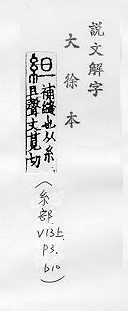 說文解字
大徐本
䋎
補縫也从糸
旦聲丈莧切
(糸部
V13上
P3.
b10)